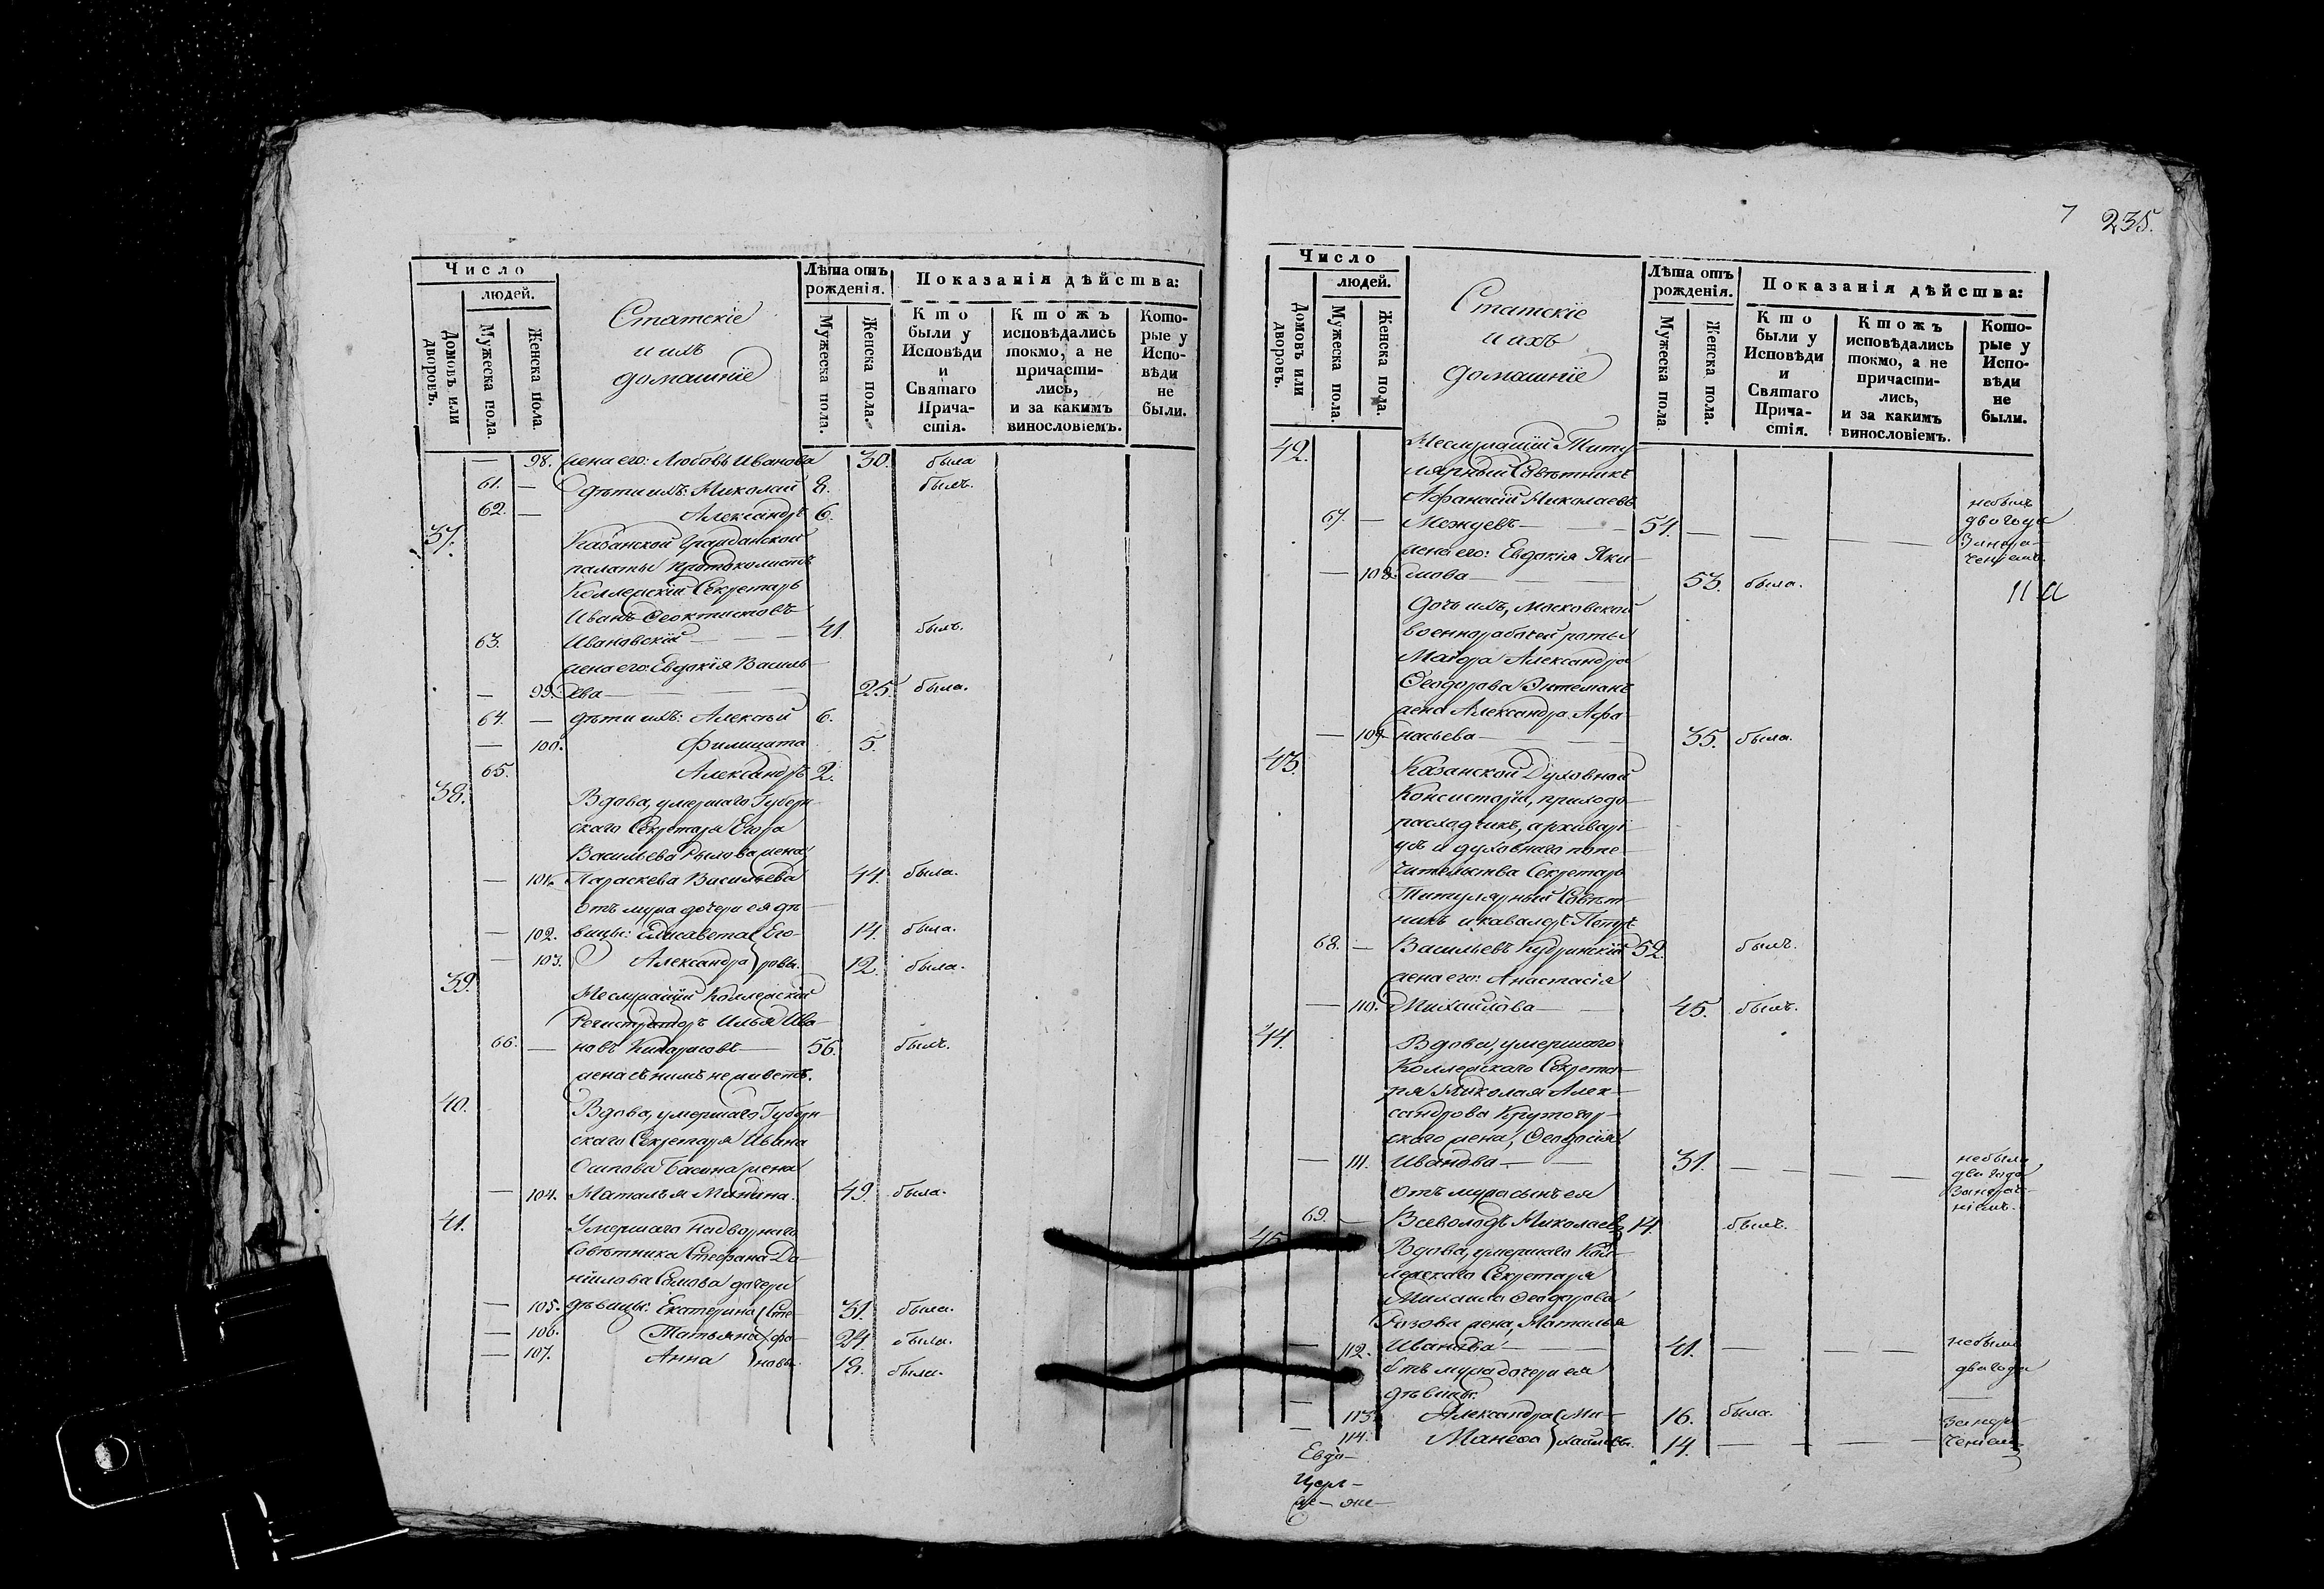 Число
людей.
Домовъ или дворовъ.
Мужеска пола.
Женска пола.
Статскіе
и ихъ
домашніе
Лѣта отъ рожденія.
Мужеска пола.
Женска пола.
Показанія дѣйства:
Кто были у Исповѣди и Святаго Причастія.
Ктожъ исповѣдались токмо, а не причастились, и за какимъ винословіемъ.
Которые у Исповѣди не были.
— 98. жена его: Любовь Иванова 30. была
61. — дѣти ихъ: Николай 8. былъ.
62. — Александръ 6.
37. Казанской гражданской
палаты протоколистъ
Коллежскій Секретарь
Иванъ Феоктистовъ
63. Ивановскій — — 41. былъ.
жена его: Евдокія Василь-
— 99. ева — — — 25. была.
64. — дѣти ихъ: Алексѣй 6.
— 100. Филицата 5.
65. Александръ 2.
38. Вдова, умершаго Губерн-
скаго Секретаря Егора
Васильева Рылова жена
— 101. Параскева Васильева 44. была.
отъ мужа дочери ея дѣ-
— 102. вицы: Елисавета Его- 14. была.
— 103. Александра ровы. 12. была.
39. Неслужащій Коллежскій
Регистраторъ Илья Ива-
66. — новъ — 56. былъ.
жена съ нимъ не живетъ.
40. Вдова, умершаго Губерн-
скаго Секретаря Ивана
Осипова Басина жена
— 104. Наталья Минина. 49. была.
41. Умершаго Надворнаго
Совѣтника Стефана Да-
нилова Сомова дочери
— 105. дѣвицы: Екатерина Сте- 31. была.
— 106. Татьяна фа- 24. была.
— 107. Анна новы. 18. была.
7 235.
Число
людей.
Домовъ или дворовъ.
Мужеска пола.
Женска пола.
Статскіе
и ихъ
домашніе
Лѣта отъ рожденія.
Мужеска пола.
Женска пола.
Показанія дѣйства:
Кто были у Исповѣди и Святаго Причастія.
Ктожъ исповѣдались токмо, а не причастились, и за какимъ винословіемъ.
Которые у Исповѣди не были.
42. Неслужащій Титу-
лярный Совѣтникъ
Афанасій Николаевъ небылъ
67. — Межуевъ — — 54. — — — — два года
жена его: Евдокія Яки-
— 108. мова — — 53. была.
11
Дочь ихъ, Московской
военнорабочей роты
Маіора Александра
Феодорова
жена Александра Афа-
— 109. насьева — — 35. была.
43. Казанской Духовной
Консисторіи, приходо-
расходчикъ, архиварі-
усъ и духовнаго попе-
чительства Секретарь
Титулярный Совѣт-
никъ и кавалеръ Петръ
68. — Васильевъ Кудринскій 52. былъ.
жена его: Анастасія
— 110. Михайлова — — 45. былъ.
44. Вдова, умершаго
Коллежскаго Секрета-
ря Николая Алек-
сандрова Крутогор-
скаго жена, Феодосія
— 111. Иванова — — 31. — — — небыла
два года
отъ мужа сынъ ея
69. — Всеволодъ Николаевъ 14. былъ.
45. Вдова, умершаго Кол-
лежскаго Секретаря
Михаила Феодорова
Разова жена, Наталья
— 112. Иванова — — 41. — — — небыла
отъ мужа дочери ея два года
дѣвицы:
— 113. Александра Ми- 16. была.
— 114. Манефа хайловы. 14. — — — —